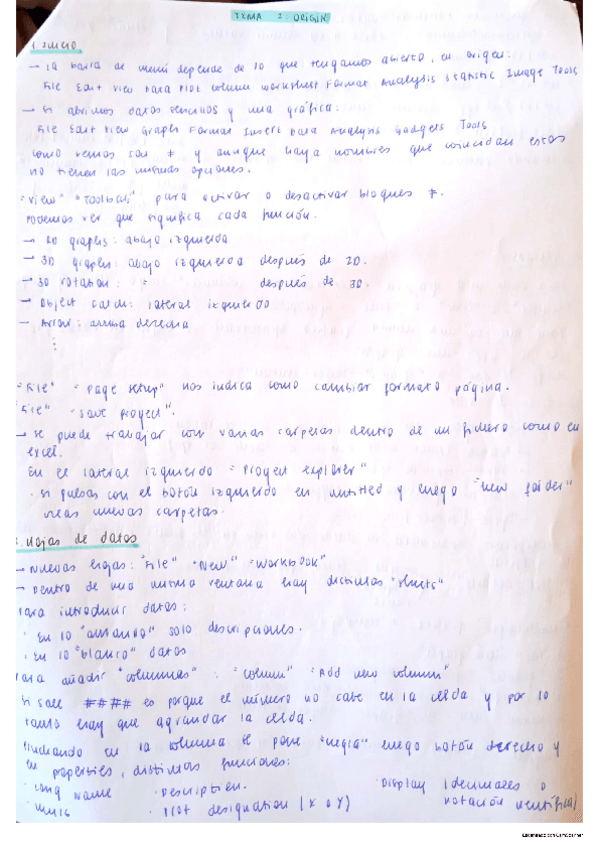 TEMA 2: ORIGIN
1. Inicio
→ La barra de menú depende de lo que tengamos abierto, en origen:
File Edit View Data Plot Column Worksheet Format Analysis Statistic Image Tools
→ Si abrimos datos y una gráfica:
File Edit View Graph Format Insert Data Analysis Gadgets Tools
como vemos son ≠ y aunque haya nombres que coincidan estos
no tienen las mismas opciones.
"View" "Toolbars" para activar o desactivar bloques
Podemos ver que significa cada función.
→ 2D graphs: abajo izquierda
→ 3D graphs: abajo izquierda después de 2D.
→ 3D rotation: después de 3D.
→ Object lateral izquierdo
→ Arrow: arriba derecha
⋮
"File" "page setup" nos indica como cambiar formato página.
"File" "save proyect".
→ Se puede trabajar con varias carpetas dentro de un fichero como en
excel.
En el lateral izquierdo "Proyect explorer"
· si pulsas con el botón izquierdo en untitled y luego "new folder"
creas nuevas carpetas.
2. Hojas de datos
→ Nuevas hojas: "File" "New" "Workbook"
→ Dentro de una misma ventana hay distintas "sheets"
Para introducir datos:
· En lo "amarillo" solo descripciones.
· En lo "blanco" datos
Para añadir "columnas": "column" "Add new column"
Si sale #### es porque el número no cabe en la celda y por lo
tanto hay que agrandar la celda.
en la columna se pone "negra" luego botón derecho y
en properties, distintas funciones:
· Long Name · Description. · Display (decimales o
· Units · Plot designation (X o Y) notación científica)